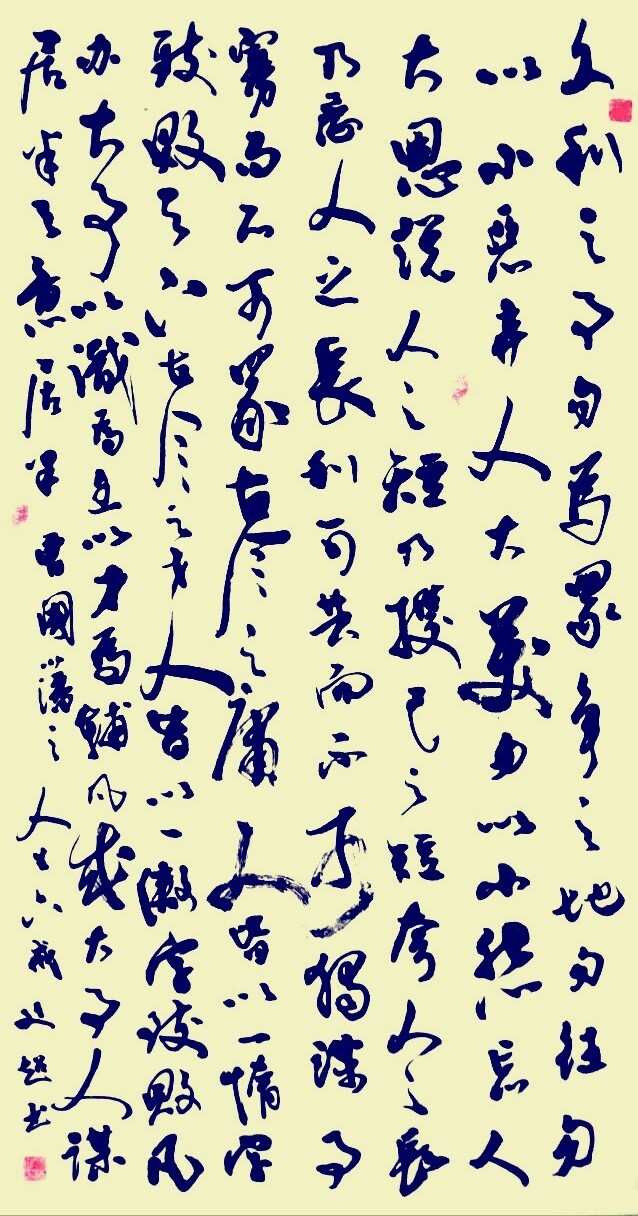 久利之事勿為眾爭之地勿往勿
以小惡弃人大美勿以小怨忘人
大恩說人之短乃護己之短夸人之長
乃忌人之長利可共而不可獨謀可
寡而不可眾古今之庸人皆以一惰字
致敗天下古今之才人皆以一傲字致敗凡
办大事以識為主以才為輔凡成大事人謀
居半天意居半 曾國藩之人生六戒 超书